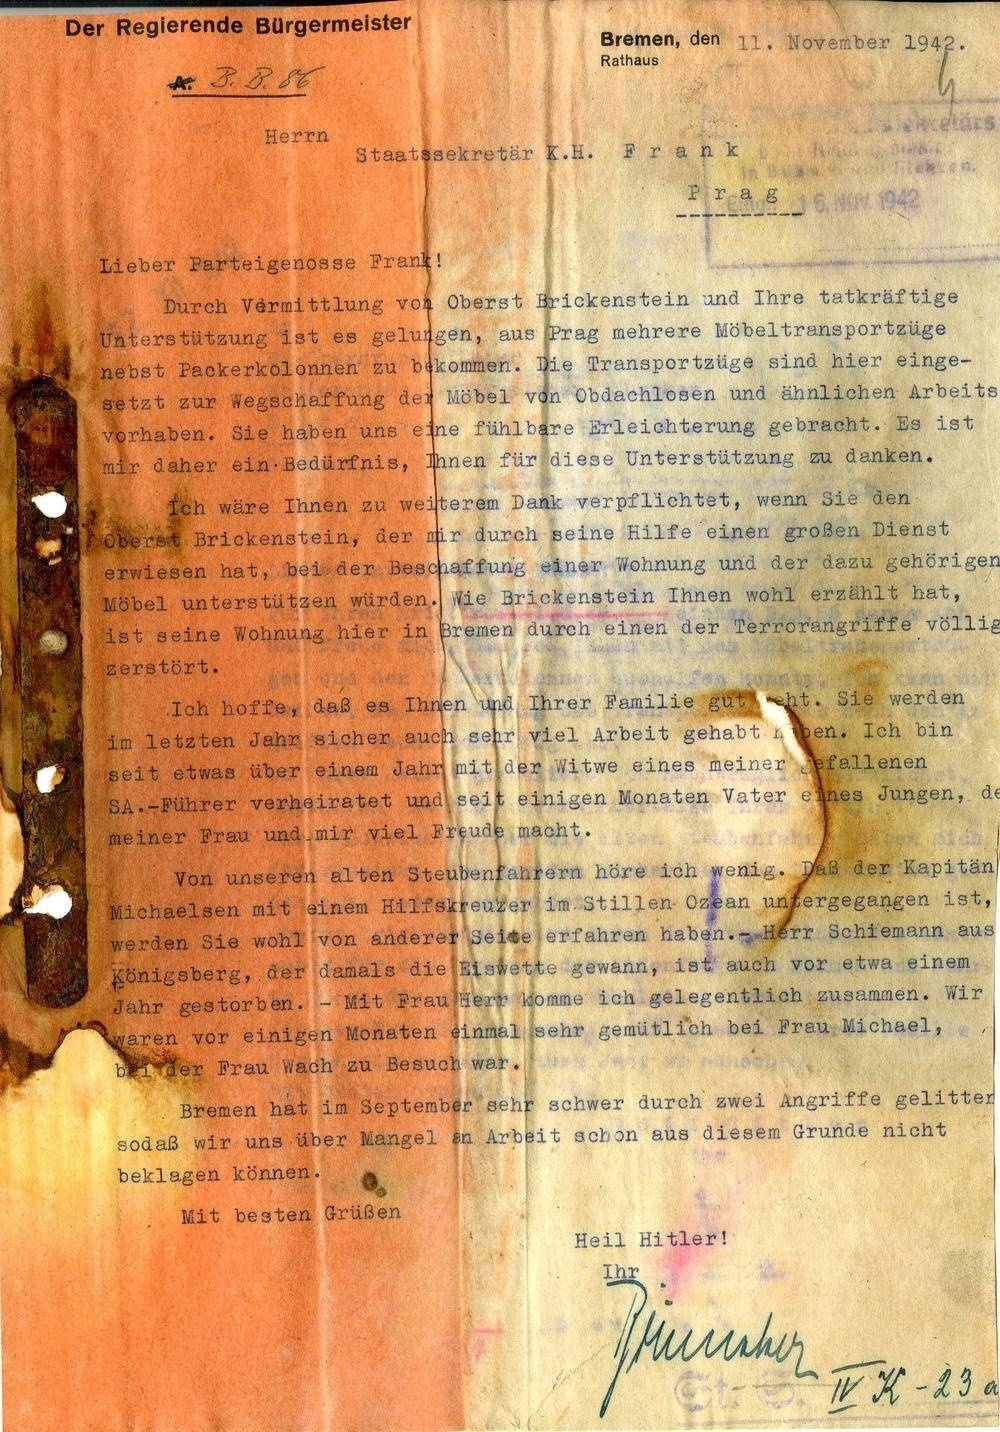 Der Regierende Bürgermeister
Bremen, den 11. November 1942.
Rathaus
A. B.B. 86
Herrn
Staatssekretär K.H. Frank
Prag
16. NOV. 1942
Lieber Parteigenosse Frank!
Durch Vermittlung von Oberst Brickenstein und Ihre tatkräftige
Unterstützung ist es gelungen, aus Prag mehrere Möbeltransportzüge
nebst Packerkolonnen zu bekommen. Die Transportzüge sind hier einge-
setzt zur Wegschaffung der Möbel von Obdachlosen und ähnlichen Arbeits
vorhaben. Sie haben uns eine fühlbare Erleichterung gebracht. Es ist
mir daher ein Bedürfnis, Ihnen für diese Unterstützung zu danken.
Ich wäre Ihnen zu weiterem Dank verpflichtet, wenn Sie den
Oberst Brickenstein, der mir durch seine Hilfe einen großen Dienst
erwiesen hat, bei der Beschaffung einer Wohnung und der dazu gehörigen
Möbel unterstützen würden. Wie Brickenstein Ihnen wohl erzählt hat,
ist seine Wohnung hier in Bremen durch einen der Terrorangriffe völlig
zerstört.
Ich hoffe, daß es Ihnen und Ihrer Familie gut geht. Sie werden
im letzten Jahr sicher auch sehr viel Arbeit gehabt haben. Ich bin
seit etwas über einem Jahr mit der Witwe eines meiner gefallenen
SA.-Führer verheiratet und seit einigen Monaten Vater eines Jungen, de
meiner Frau und mir viel Freude macht.
Von unseren alten Steubenfahrern höre ich wenig. Daß der Kapitän
Michaelsen mit einem Hilfskreuzer im Stillen Ozean untergegangen ist,
werden Sie wohl von anderer Seite erfahren haben.- Herr Schiemann aus
Königsberg, der damals die Eiswette gewann, ist auch vor etwa einem
Jahr gestorben. - Mit Frau Herr komme ich gelegentlich zusammen. Wir
waren vor einigen Monaten einmal sehr gemütlich bei Frau Michael,
bei der Frau Wach zu Besuch war.
Bremen hat im September sehr schwer durch zwei Angriffe gelitten
sodaß wir uns über Mangel an Arbeit schon aus diesem Grunde nicht
beklagen können.
Mit besten Grüßen
Heil Hitler!
Ihr
IV K - 23 a